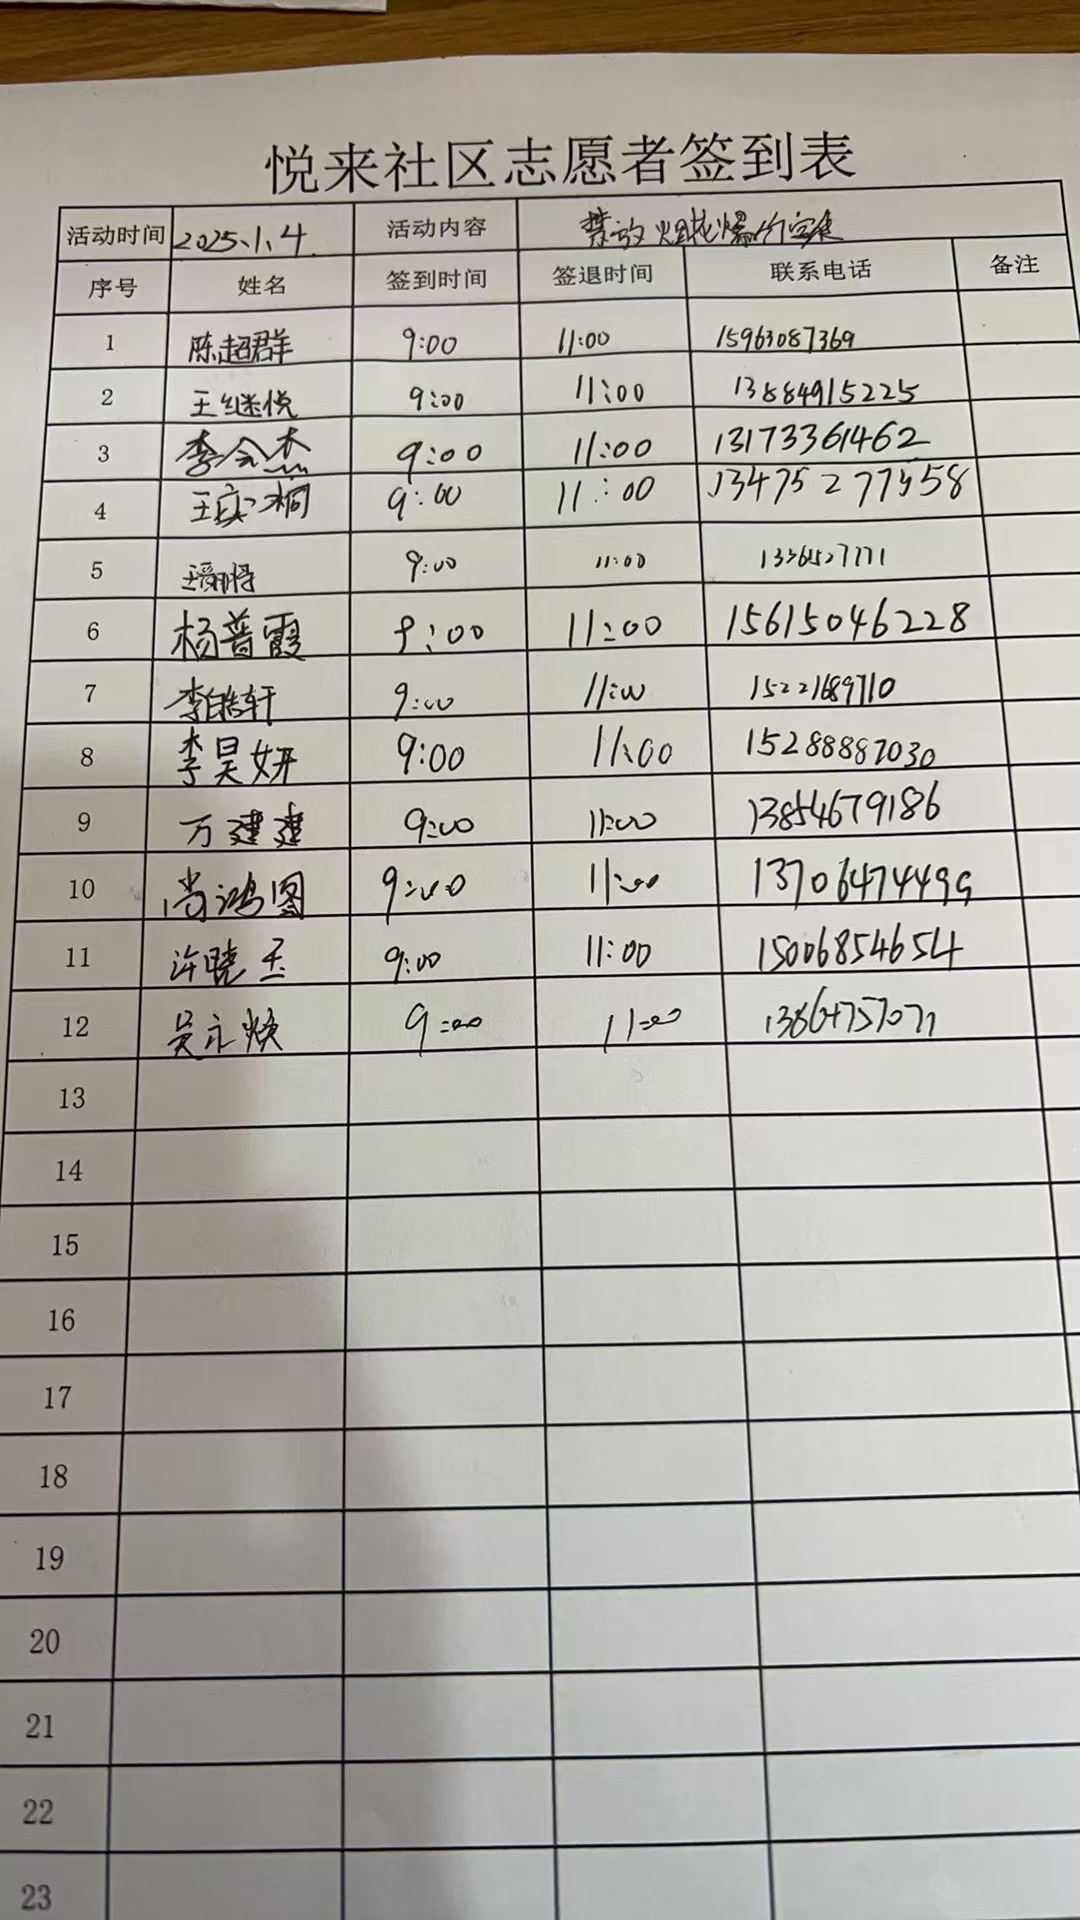 悦来社区志愿者签到表
活动时间 2025.1.4. 活动内容 禁放烟花爆竹宣传
序号 姓名 签到时间 签退时间 联系电话 备注
1 陈超群 9:00 11:00 15963087369
2 王继悦 9:00 11:00 13884915225
3 李会杰 9:00 11:00 13173361462
4 9:00 11:00 13475277958
5 9:00 11:00
6 杨普霞 9:00 11:00 15615046228
7 李皓轩 9:00 11:00 15221689710
8 李昊妍 9:00 11:00 15288887030
9 万建建 9:00 11:00 13854679186
10 尚鸿图 9:00 11:00 13706474499
11 许晓玉 9:00 11:00 15006854654
12 吴永焕 9:00 11:00
13
14
15
16
17
18
19
20
21
22
23